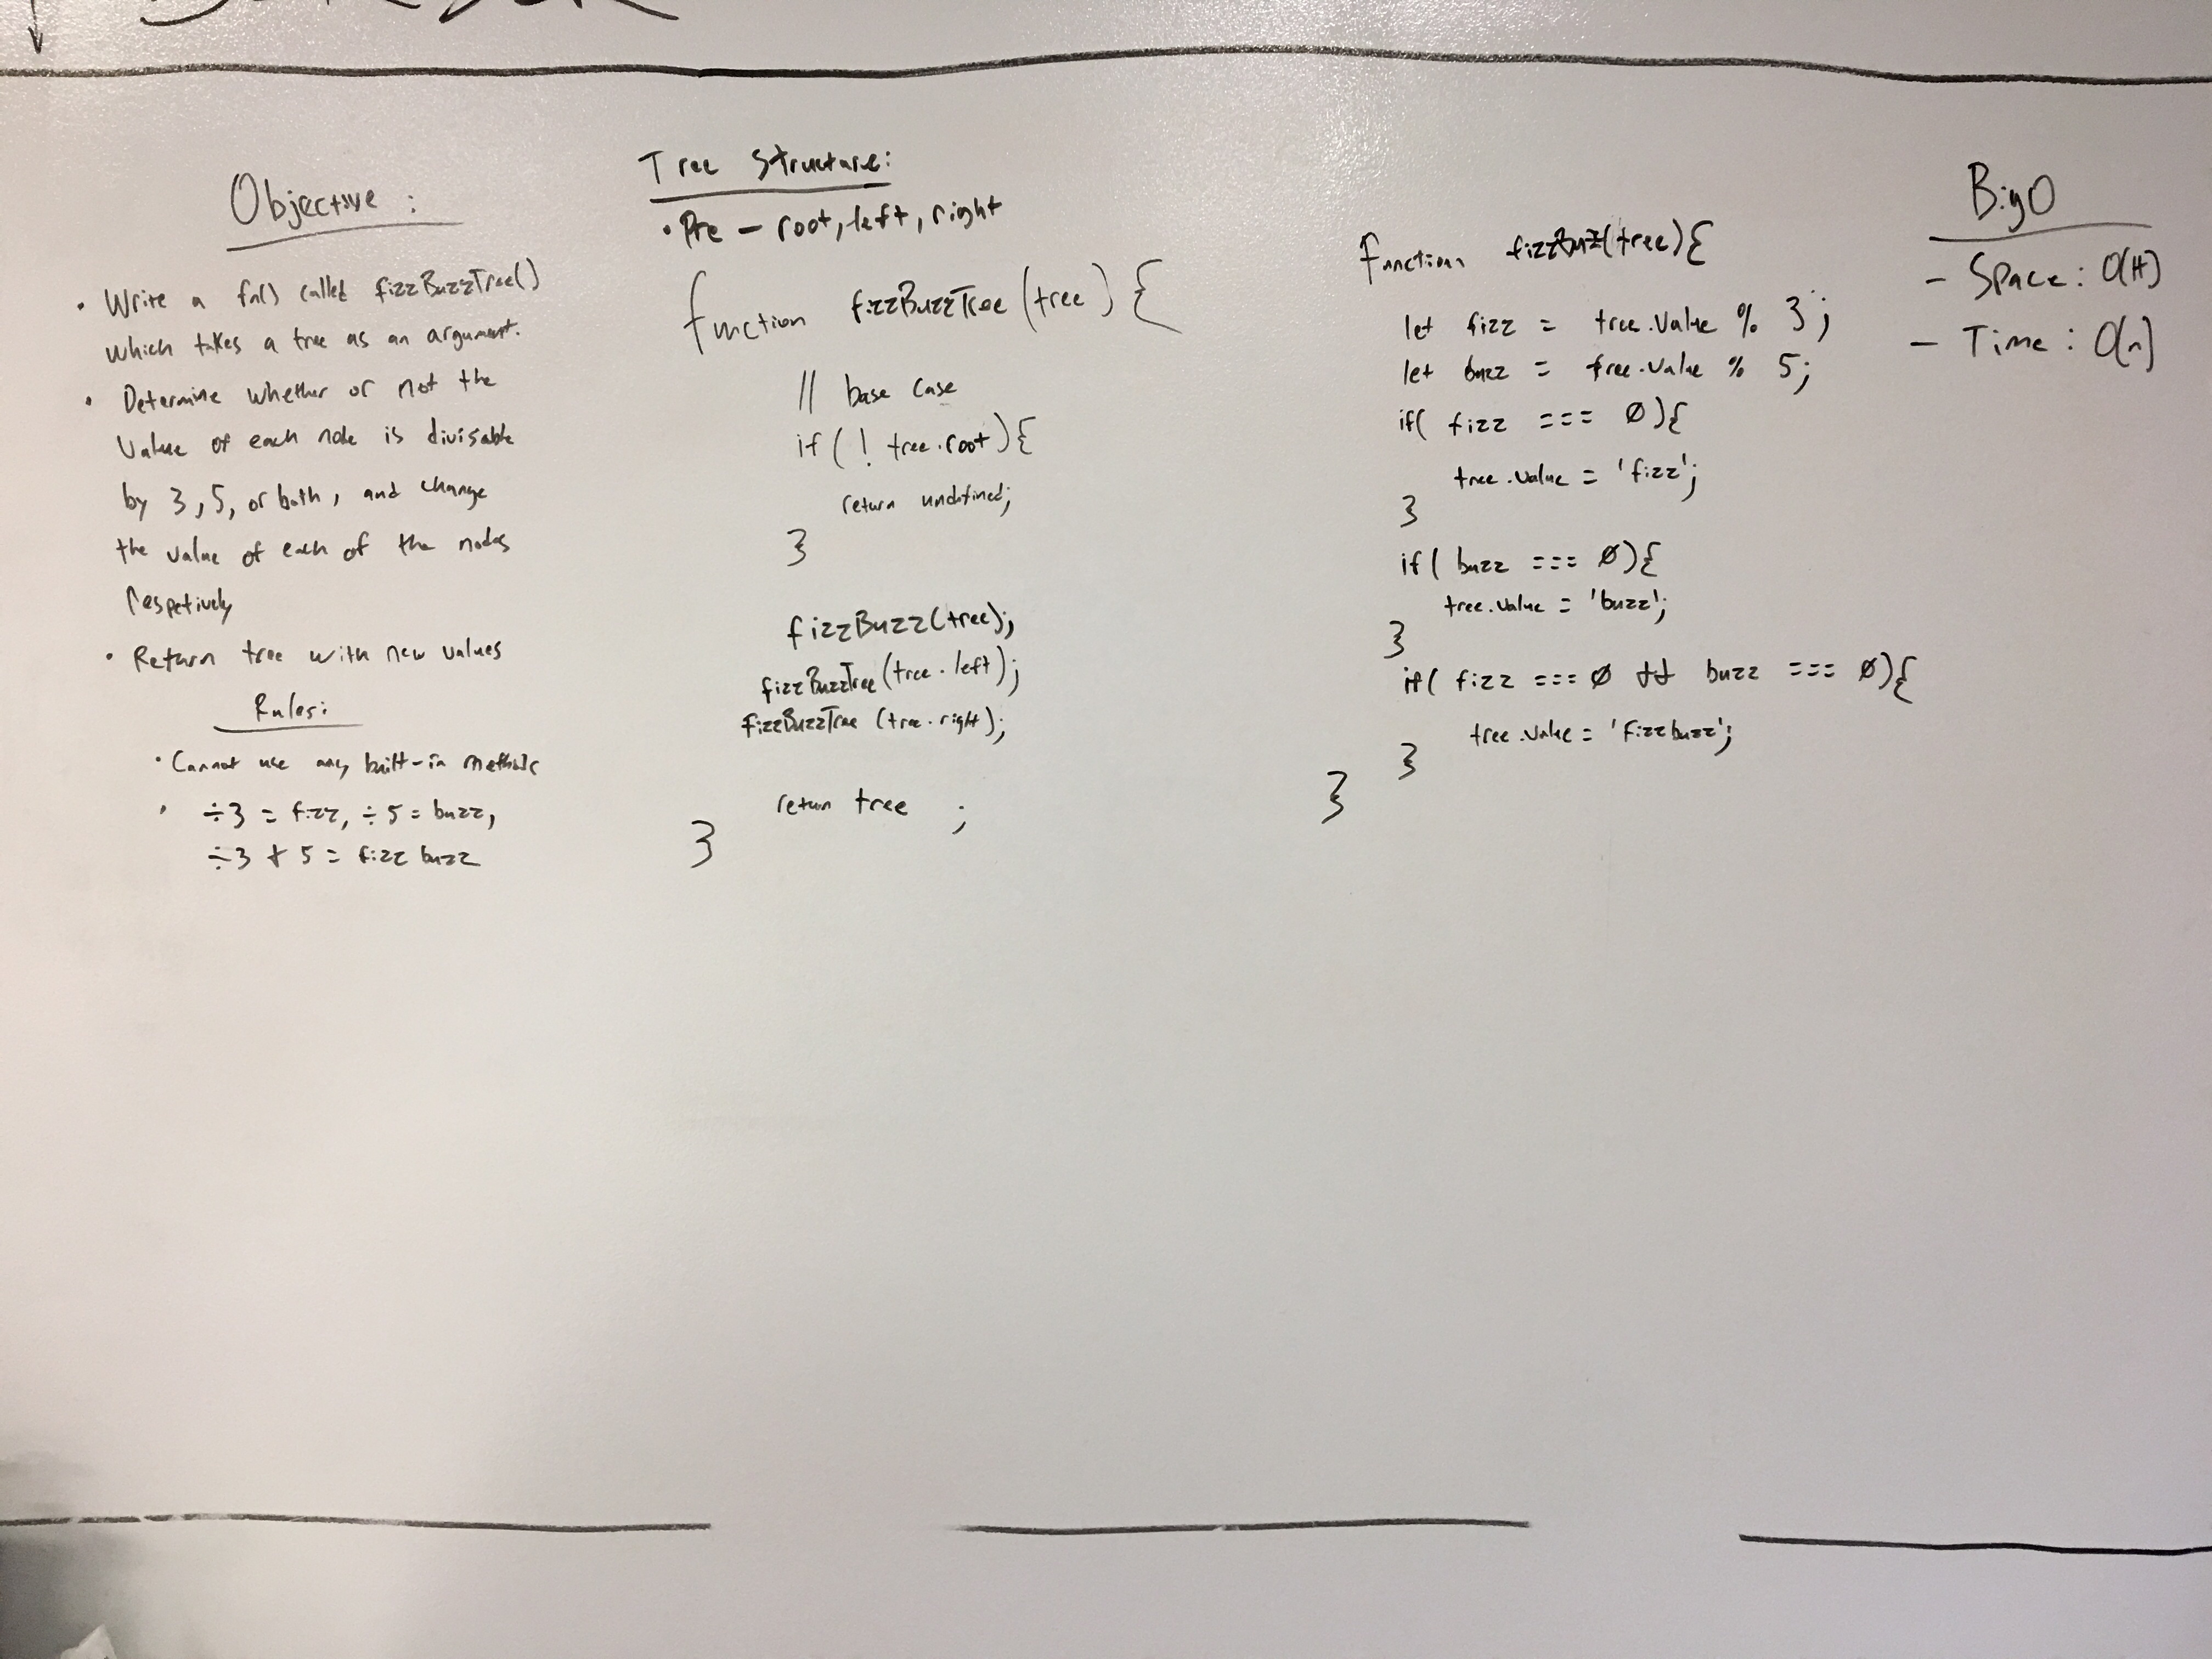 Objective :
• Write a fn() called fizzBuzzTree()
which takes a tree as an argument.
• Determine whether or not the
value of each node is divisable
by 3, 5, or both, and change
the value of each of the nodes
respetively
• Return tree with new values
Rules:
• Cannot use any built-in methods
• ÷3 = fizz, ÷5 = buzz,
÷3 + 5 = fizz buzz
Tree Structure:
• Pre – root, left, right
function fizzBuzzTree (tree) {
// base case
if ( ! tree.root){
return undefined;
}
fizzBuzz(tree);
fizzBuzzTree(tree.left);
fizzBuzzTree (tree.right);
return tree ;
}
function fizzBuzz(tree){
let fizz = tree.value % 3;
let buzz = tree.value % 5;
if( fizz === 0){
tree.value = 'fizz';
}
if( buzz === 0){
tree.value = 'buzz';
}
if( fizz === 0 && buzz === 0){
tree.value = 'fizzbuzz';
}
}
BigO
- Space: O(H)
- Time: O(n)